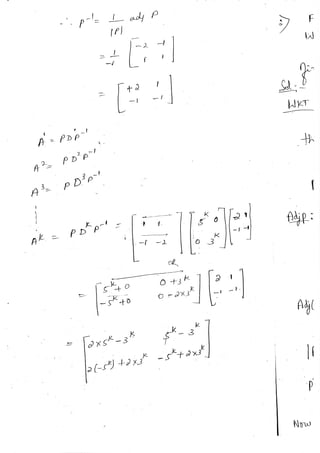 ∴ P⁻¹ = 1/|P| adj P
= 1/-1 [ -2 -1
1 1 ]
= [ +2 1
-1 -1 ]
A¹ = P D P⁻¹
A² = P D² P⁻¹
A³ = P D³ P⁻¹
Aᵏ = P Dᵏ P⁻¹ = [ 1 1
-1 -2 ] [ 5ᵏ 0
0 3ᵏ ] [ 2 1
-1 -1 ]
OR
= [ 5ᵏ+0 0+3ᵏ
-5ᵏ+0 0-2x3ᵏ ] [ 2 1
-1 -1 ]
= [ 2x5ᵏ-3ᵏ 5ᵏ-3ᵏ
2(-5ᵏ)+2x3ᵏ -5ᵏ+2x3ᵏ ]
Sol:-
WKT
th
Adjp:
Adj(
P
Now